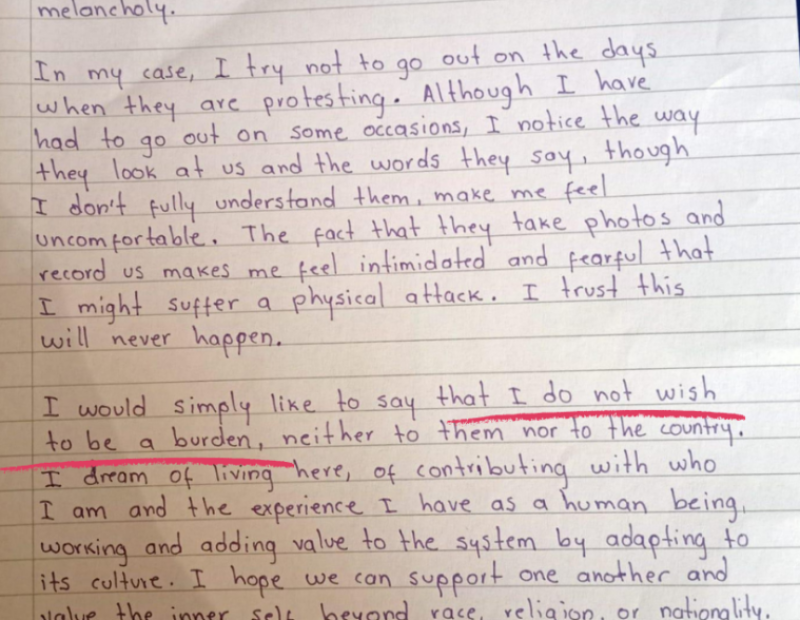 melancholy.
In my case, I try not to go out on the days
when they are protesting. Although I have
had to go out on some occasions, I notice the way
they look at us and the words they say, though
I don't fully understand them, make me feel
uncomfortable. The fact that they take photos and
record us makes me feel intimidated and fearful that
I might suffer a physical attack. I trust this
will never happen.
I would simply like to say that I do not wish
to be a burden, neither to them nor to the country.
I dream of living here, of contributing with who
I am and the experience I have as a human being,
working and adding value to the system by adapting to
its culture. I hope we can support one another and
value the inner self beyond race, religion, or nationality.